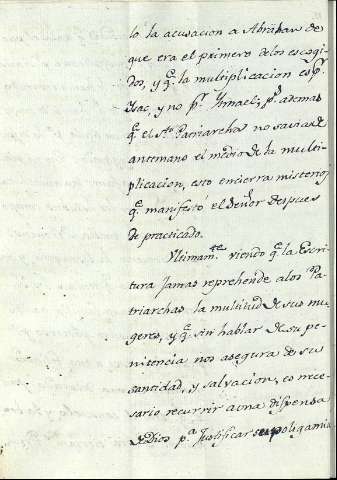 ló la acusacion a Abrahan de
que era el primero delos escogi-
dos, y q.e la multiplicacion es p.r
Isac, y no p.r Ismael; p.r ademas
q.e el S.to Patriarcha no savia de
antemano el medio de la multi-
plicacion, esto encierra misterio,
q.e manifestó el Señor despues
de practicado.
Ultimam.te viendo q.e la Escri-
tura jamas reprehende alos Pa-
triarchas la multitud de sus mu-
geres, y q.e sin hablar de su pe-
nitencia nos asegura de su
santidad, y salvacion, es nece-
sario recurrir auna dispensa
de Dios p.a Justificar su poligamia